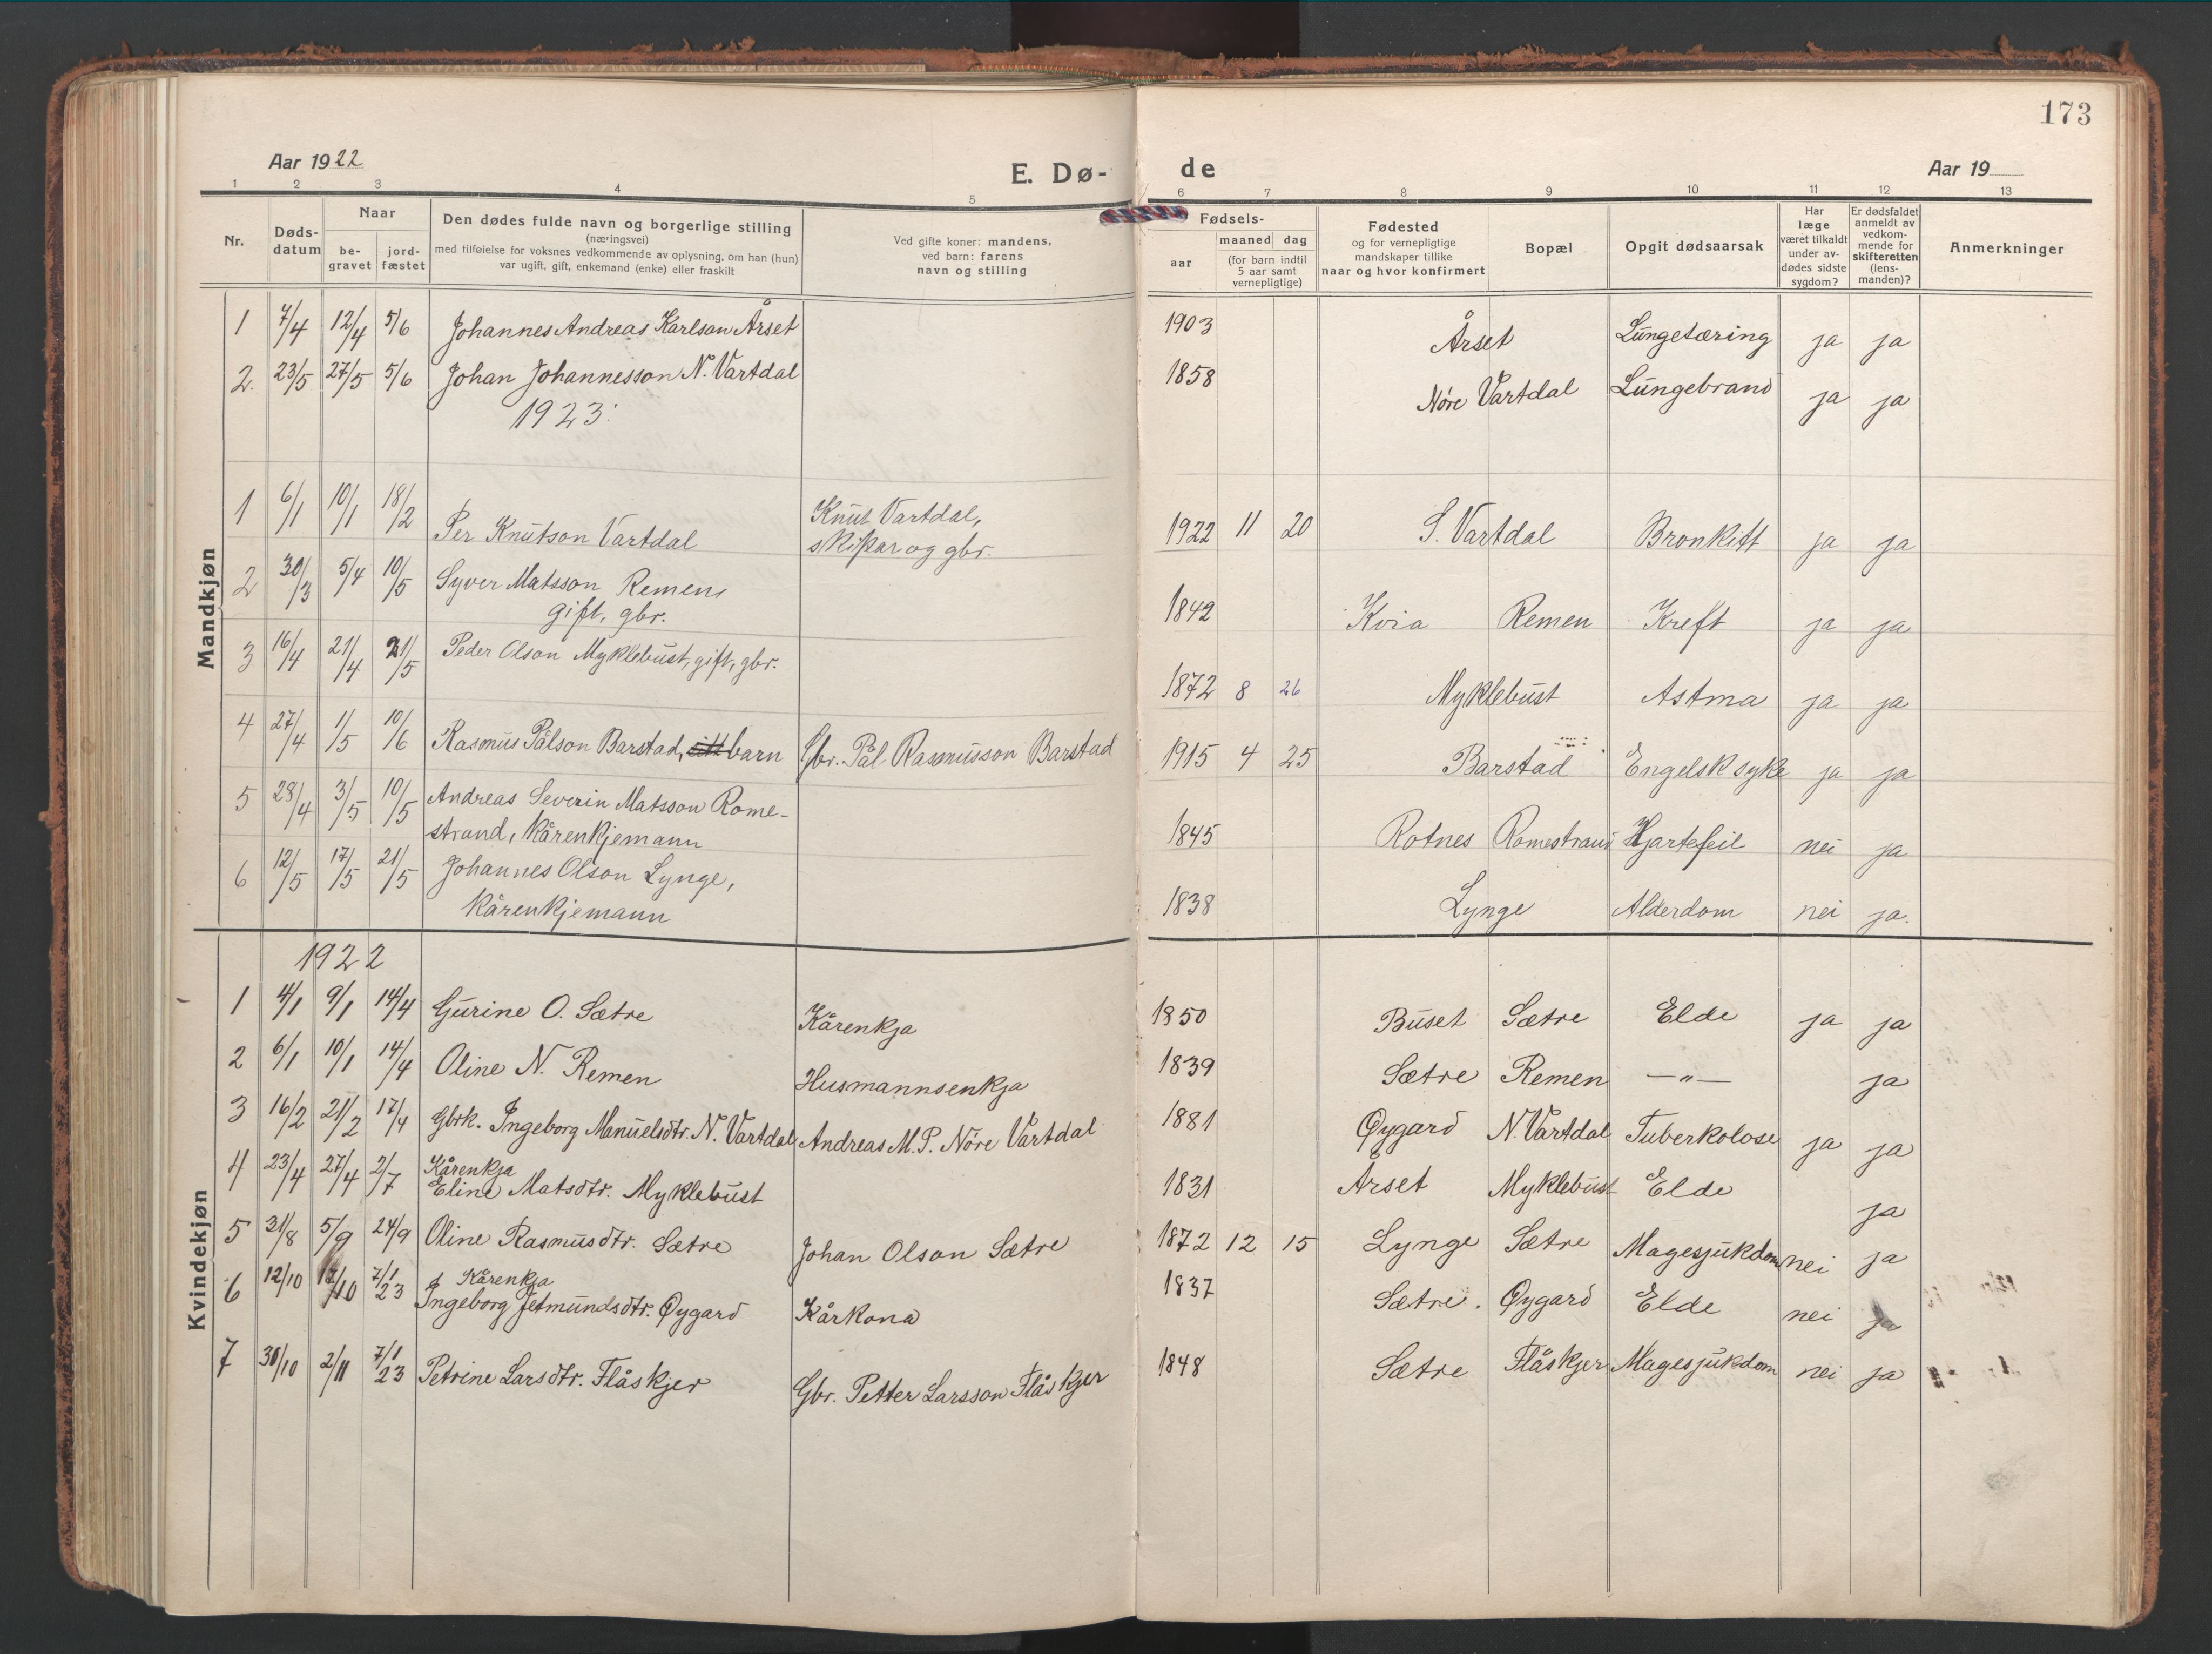 173
Aar 1922 E. Dø- de Aar 19
1 2 3 4 5 6 7 8 9 10 11 12 13
Nr.
Døds-datum
Naar
be-gravet
jord-fæstet
Den dødes fulde navn og borgerlige stilling
(næringsvei)
med tilføielse for voksnes vedkommende av oplysning, om han (hun)
var ugift, gift, enkemand (enke) eller fraskilt
Ved gifte koner: mandens,
ved barn: farens
navn og stilling
Fødsels-
aar
maaned dag
(for barn indtil
5 aar samt
vernepligtige)
Fødested
og for vernepligtige
mandskaper tillike
naar og hvor konfirmert
Bopæl
Opgit dødsaarsak
Har
læge
været tilkaldt
under av-
dødes sidste
sygdom?
Er dødsfaldet
anmeldt av
vedkom-
mende for
skifteretten
(lens-
manden)?
Anmerkninger
Mandkjøn
1 7/4 12/4 5/6 Johannes Andreas Karlson Årset 1903 Årset Lungetæring ja ja
2. 23/5 27/5 5/6 Johan Johannesson N. Vartdal 1858 Nøre Vartdal Lungebrand ja ja
1923:
1 6/1 10/1 18/2 Per Knutson Vartdal Knut Vartdal, 1922 11 20 S. Vartdal Bronkitt ja ja
skipar og gbr.
2 30/3 5/4 10/5 Syver Matsson Remen, 1842 Kvia Remen Kreft ja ja
gift, gbr.
3 16/4 21/4 21/5 Peder Olson Myklebust, gift, gbr. 1872 8 26 Myklebust Astma ja ja
4 27/4 1/5 10/6 Rasmus Pålson Barstad, barn Gbr. Pål Rasmusson Barstad 1915 4 25 Barstad Engelsk syke ja ja
5 28/4 3/5 10/5 Andreas Severin Matsson Rome- 1845 Rotnes Romestrand Hjartefeil nei ja
strand, kårenkjemann
6 12/5 17/5 21/5 Johannes Olson Lynge, 1838 Lynge Alderdom nei ja.
kårenkjemann
Kvindekjøn
1922
1 4/1 9/1 14/4 Gurine O. Sætre Kårenkja 1850 Buset Sætre Elde ja ja
2 6/1 10/1 14/4 Oline N. Remen Husmannsenkja 1839 Sætre Remen —"— ja
3 16/2 21/2 17/4 Gbrk. Ingeborg Manuelsdtr. N. Vartdal Andreas M. P. Nøre Vartdal 1881 Øygard N. Vartdal Tuberkolose ja ja
Kårenkja
4 23/4 27/4 2/7 Eline Matsdtr. Myklebust 1831 Årset Myklebust Elde ja
5 31/8 5/9 24/9 Oline Rasmusdtr. Sætre Johan Olson Sætre 1872 12 15 Lynge Sætre Magesjukdom nei ja
Kårenkja
6 12/10 17/10 7/1 23 Ingeborg Jetmundsdtr. Øygard Kårkona 1837 Sætre. Øygard Elde nei ja
7 30/10 2/11 7/1 23 Petrine Larsdtr. Flåskjer Gbr. Petter Larsson Flåskjer 1848 Sætre Flåskjer Magesjukdom nei ja